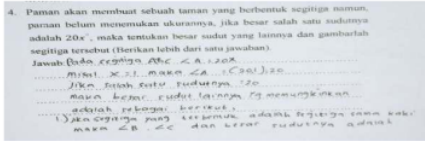 4. Paman akan membuat sebuah taman yang berbentuk segitiga namun,
paman belum menemukan ukurannya, jika besar salah satu sudutnya
adalah 20x°, maka tentukan besar sudut yang lainnya dan gambarlah
segitiga tersebut (Berikan lebih dari satu jawaban).
Jawab: Pada segitiga ABC ∠A = 20x
misal x = 1 maka ∠A = (20)1 = 20
Jika salah satu sudutnya 20
maka besar sudut lainnya yg memungkinkan
adalah sebagai berikut.
1) Jika segitiga yang terbentuk adalah segitiga sama kaki
maka ∠B = ∠C dan besar sudutnya adalah